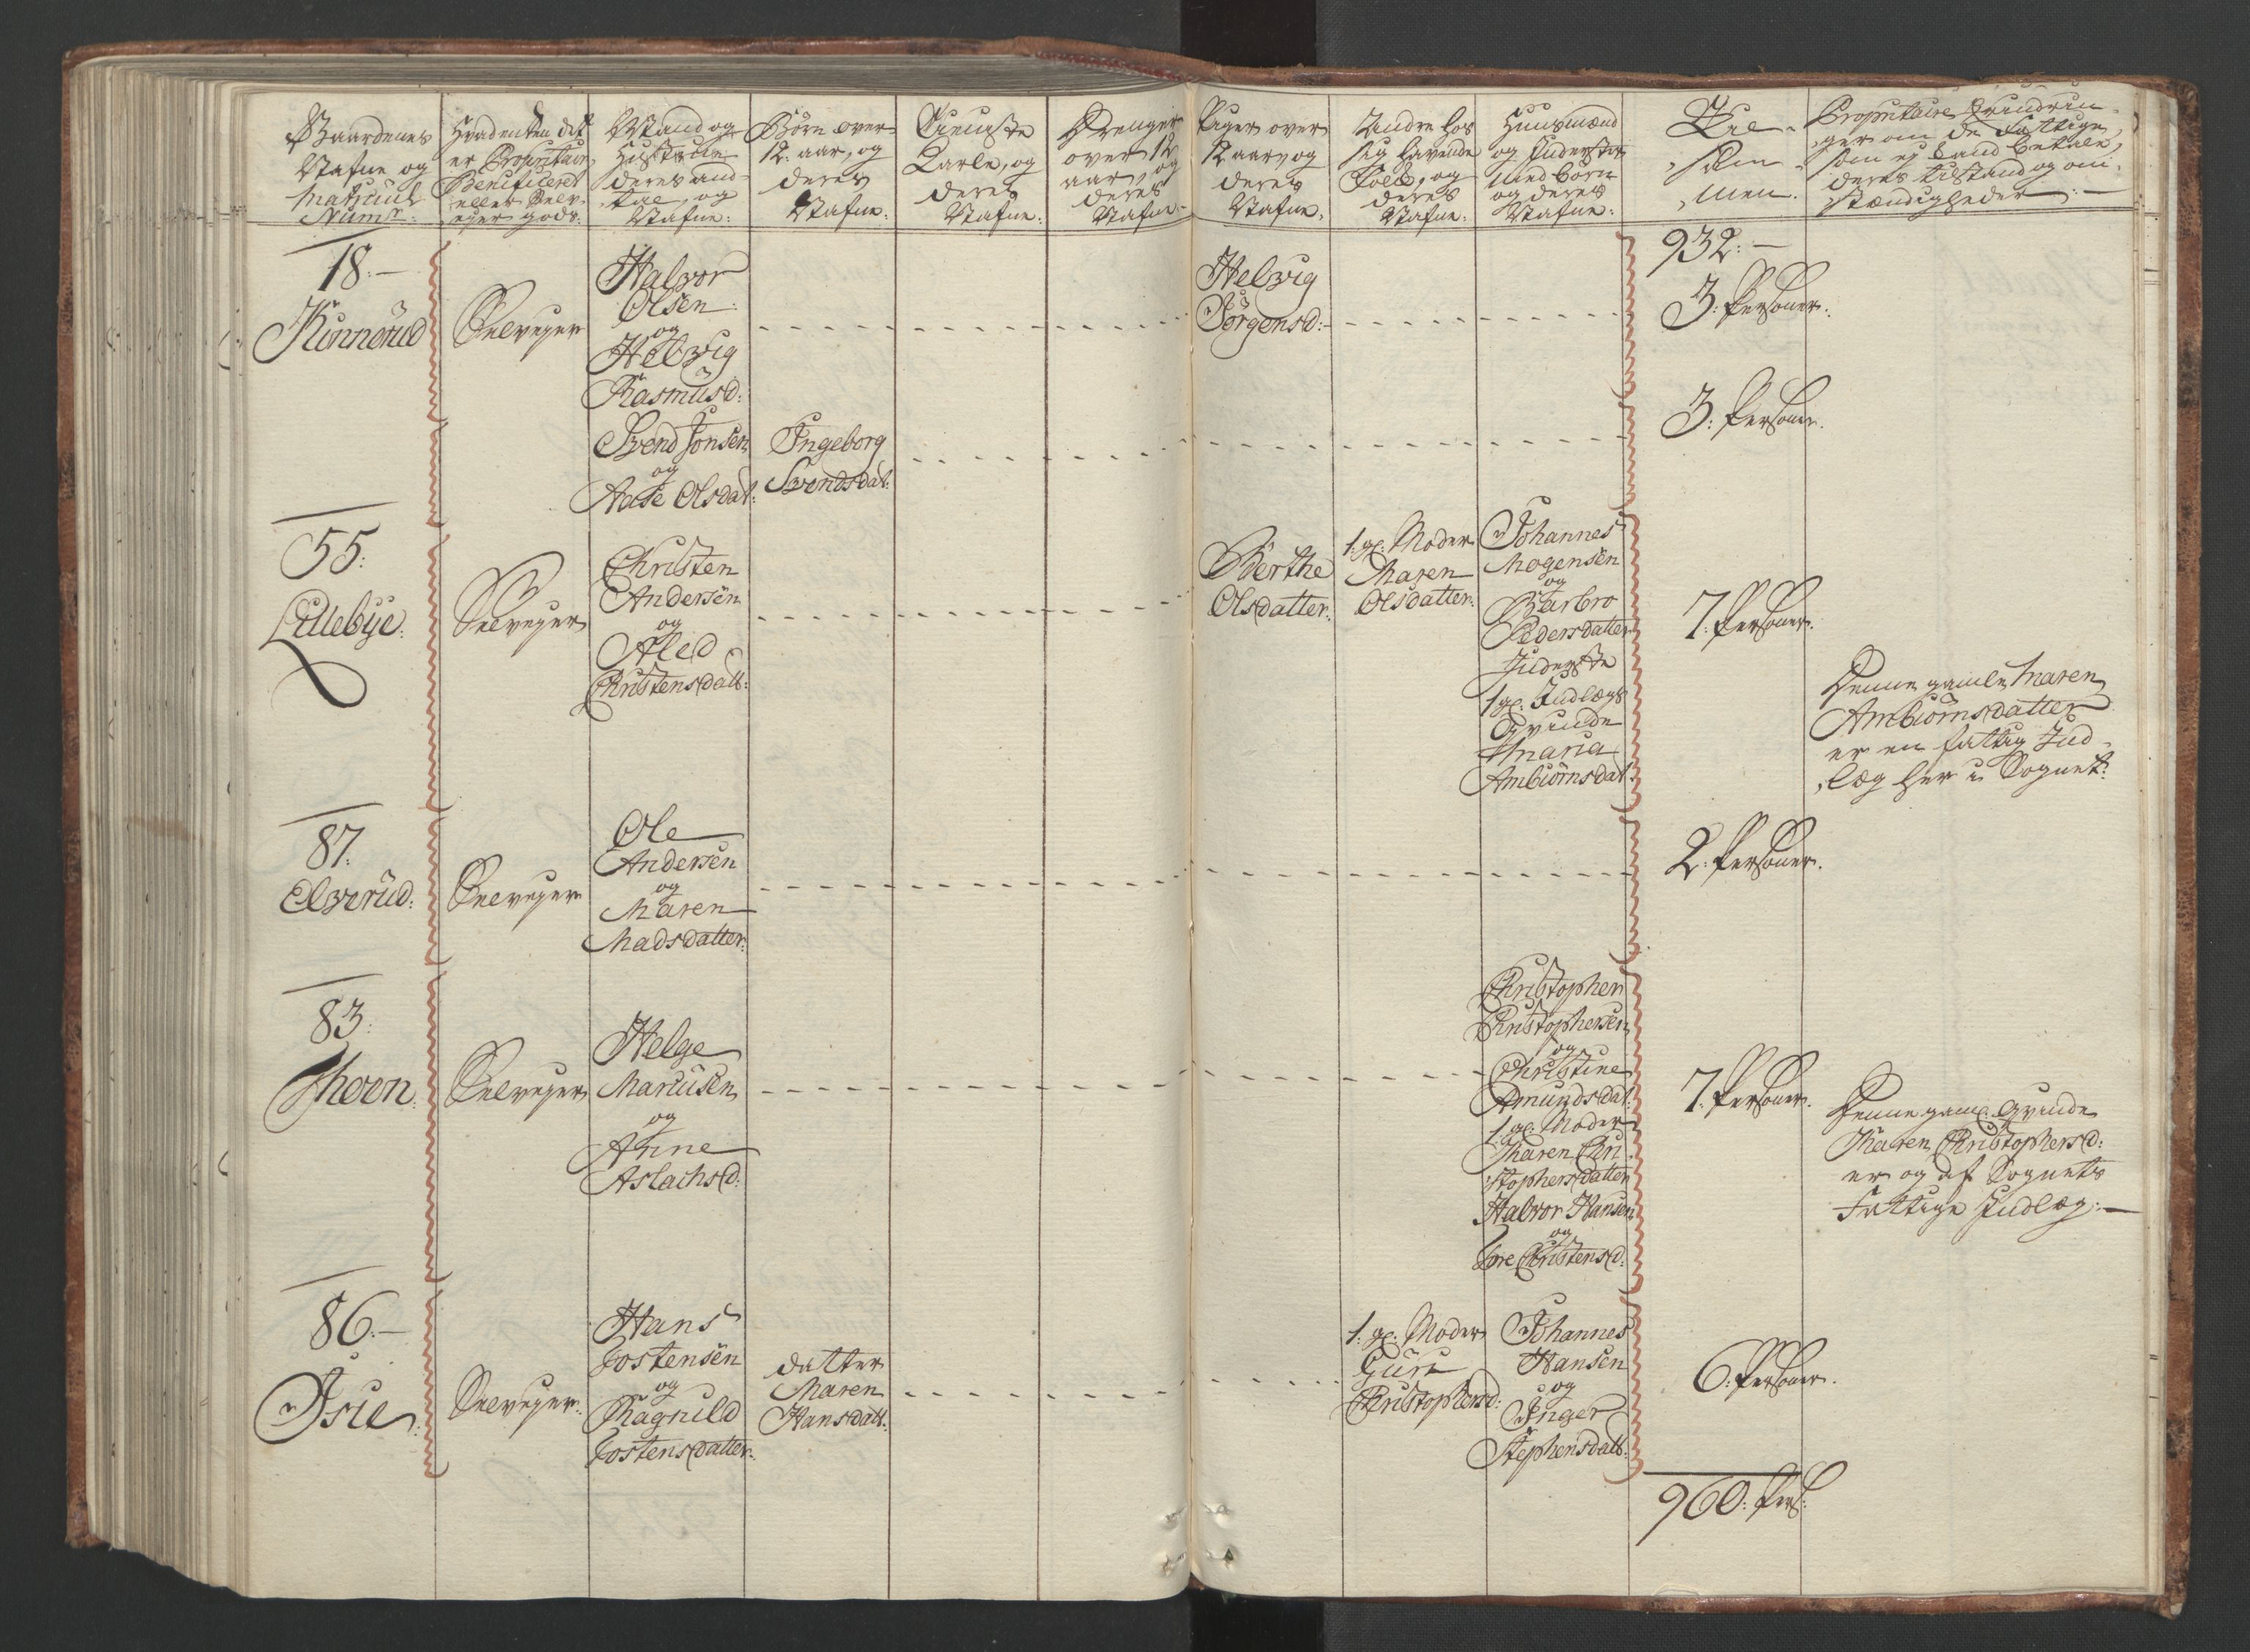 Gaardenes
Nafne og
Matricul
Num:
Hvad enten det
er Proprietair
Beneficeret
eller Selv-
ejer gods:
Mand og
Hustrue
deres and-
tal, og
Nafne:
Børn over
12: aar, og
deres
Nafne:
Tieneste
Karle, og
deres
Nafne:
Drenger
over 12
aar, og
deres
Nafne:
Piger over
12 aar og
deres
Nafne:
Andre hos
sig havende
Folk, og
deres
Nafne:
Huusmænd
og Inderster
med børn
og deres
Nafne:
men:
Proprietaire Erindrin-
ger om de Fattige,
som ej kand betale,
deres tilstand og om-
stændigheder:
18:
Kinnerud
Selvejer
Halvor
Olsen
og
Helvig
Rasmusd:
Helvig
Jörgensd:
932:
3: Personer.
Svend Jonsen
og
Aase Olsdat:
Ingeborg
Svendsdat:
3: Personer.
55:
Lillebye:
Selvejer
Christen
Andersen
og
Aled
Christensdatt:
Berthe
Olsdatter:
1: gl: Moder
Maren
Olsdatter:
Johannes
Mogensen
og
Barbro
Pedersdatter
Inderste
1 gl: Indlægs
Qvinde
Maria
Ambiörnsdat:
7: Personer.
Denne gamle Maren
Ambiörnsdatter
er en fattig Ind-
læg her i Sognet:
87:
Elverud:
Selvejer
Ole
Andersen
og
Maren
Madsdatter:
2: Personer.
83:
Thoon:
Selvejer
Helge
Mariusen
og
Anne
Aslachsd:
Christopher
Christophersen
og
Christine
Amundsdat:
1: gl: Moder
Karen Chri-
stophersdatter
Halvor Hansen
og
Christensd:
7: Personer.
Denne gaml: Qvinde
Karen Christophersd:
er og af Sognets
Fattige Indlæg:
86:
Isie
Selvejer:
Hans
Jostensen
og
Ragnild
Jostensdatter:
datter
Maren
Hansdatt:
1: gl: Moder
Guri
Christophersd:
Johannes
Hansen
og
Inger
Stephensdatt:
6: Personer.
960: Pers: